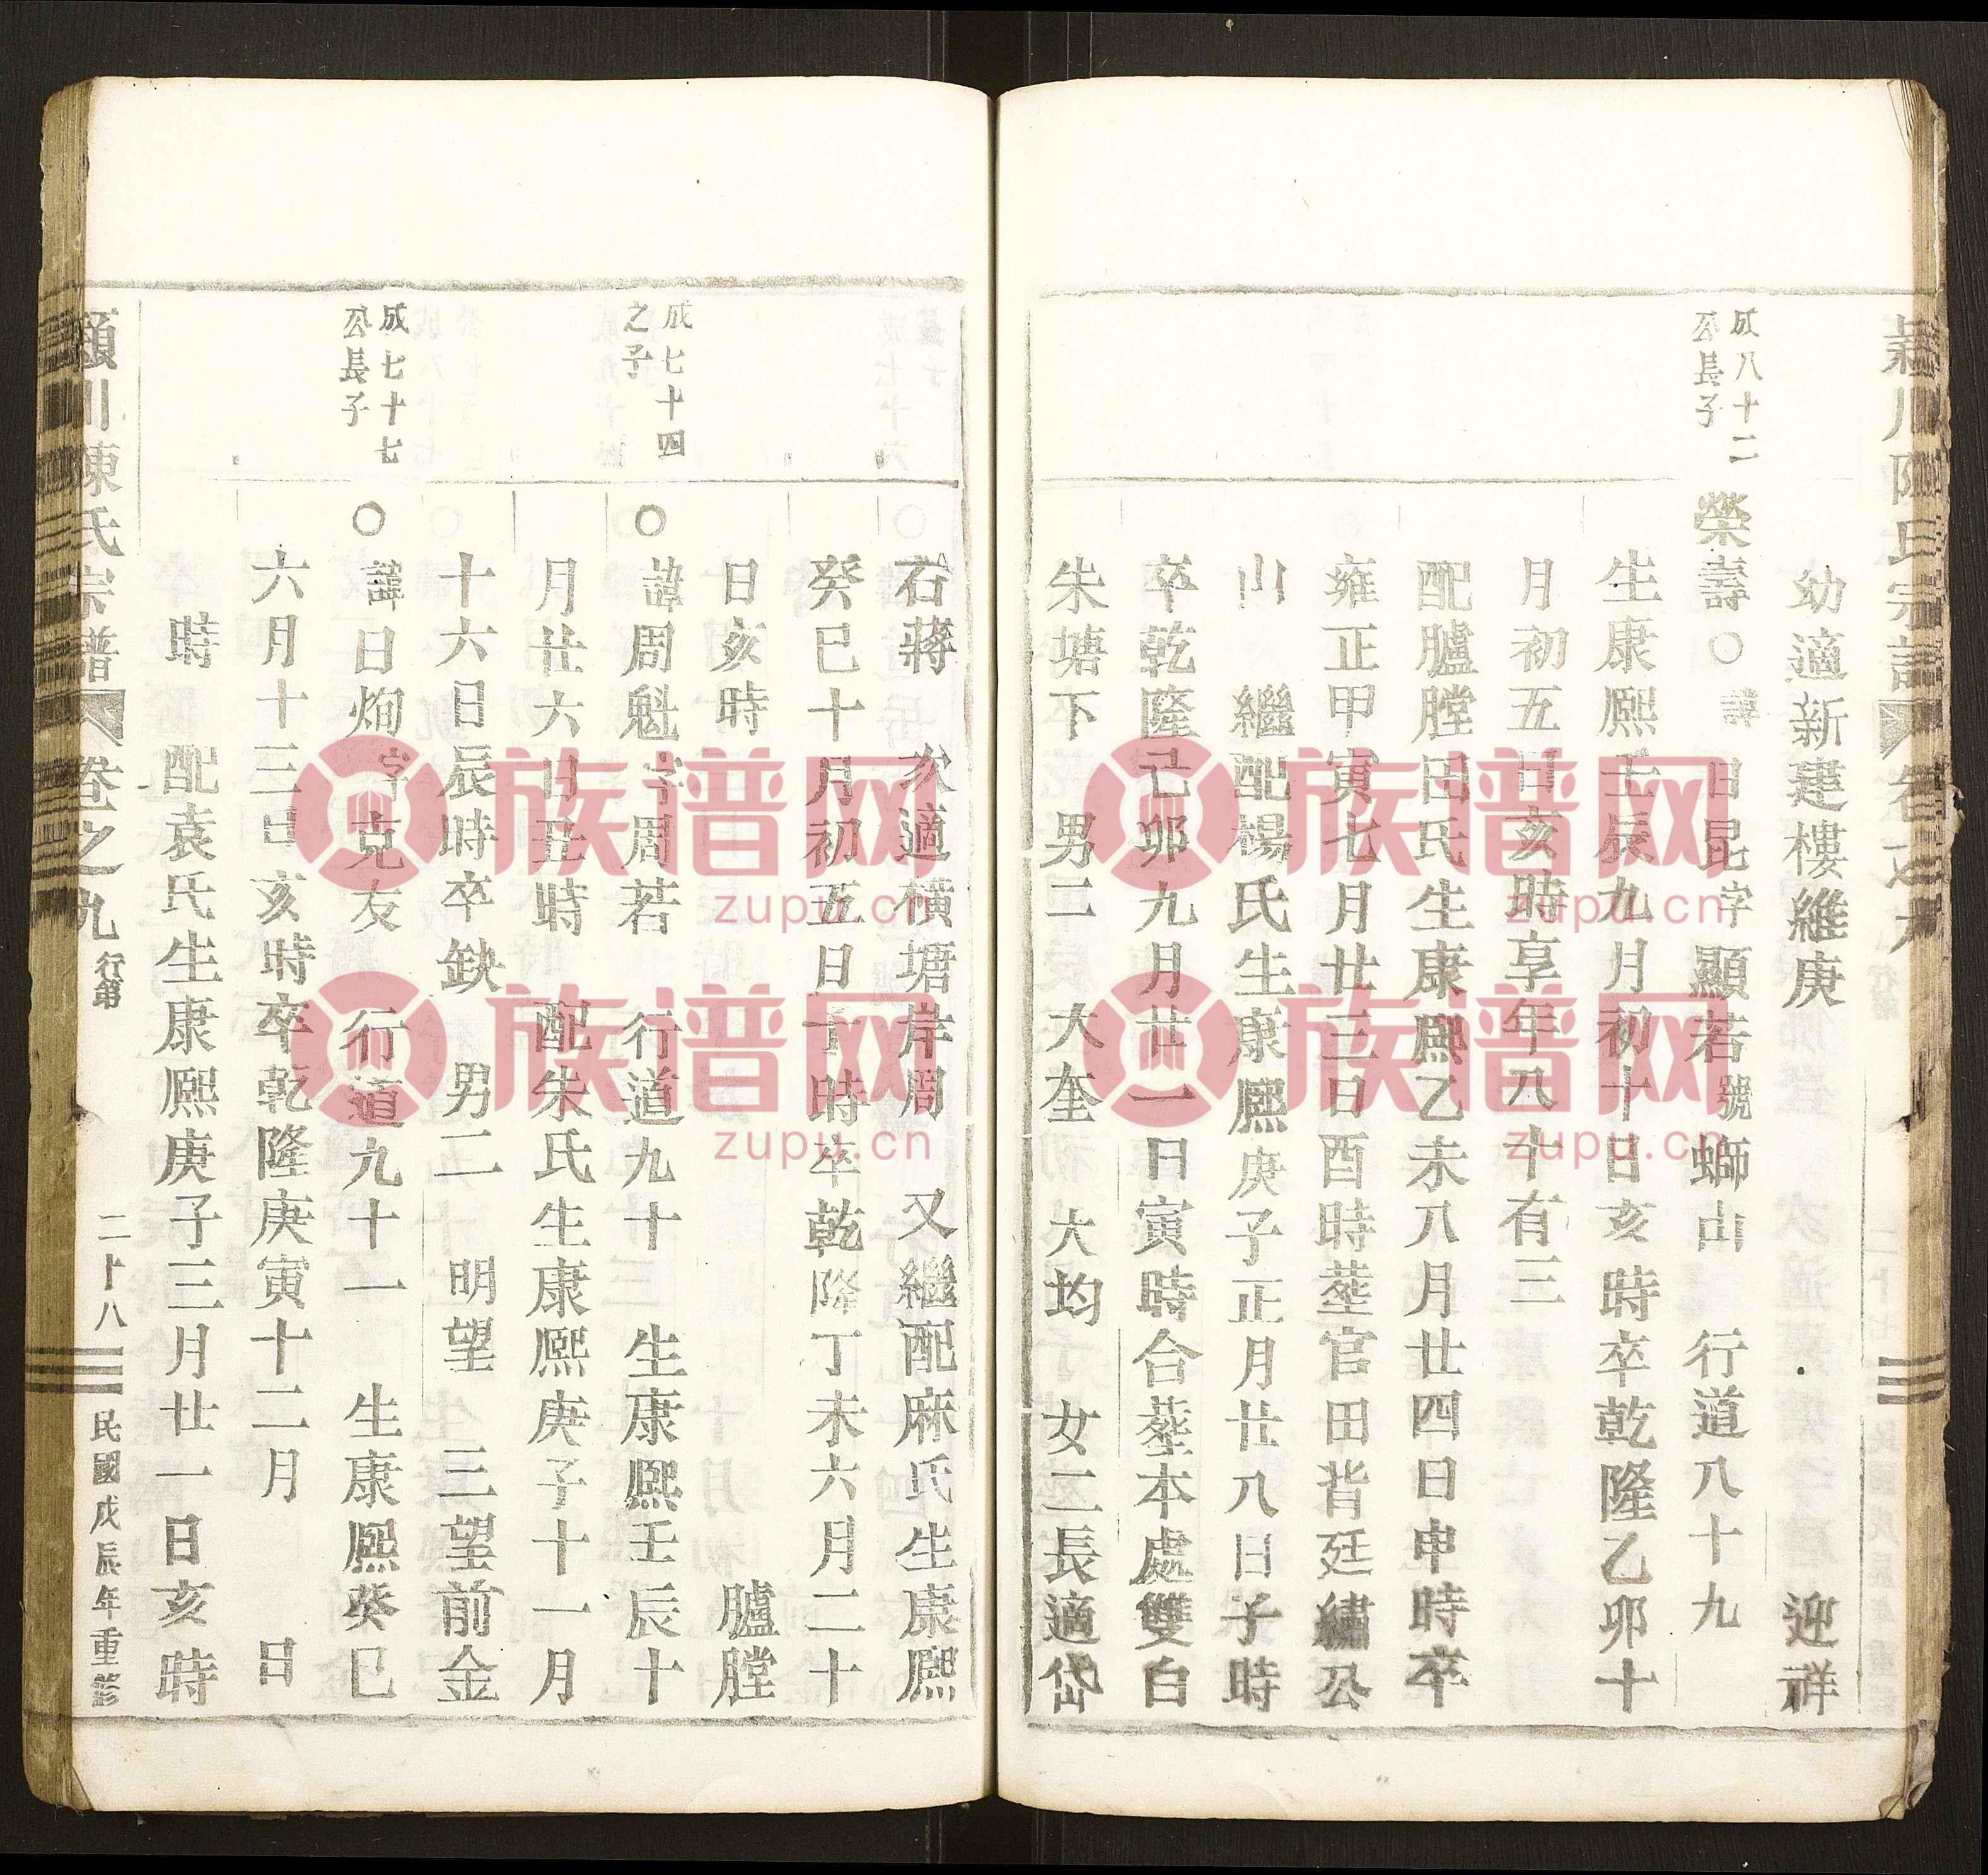 幼適新建樓維庚　迎祥
成八十二
公長子
榮壽○諱日昆字顯若號螄山　行道八十九
生康熙壬辰九月初十日亥時卒乾隆乙卯十
月初五日亥時享年八十有三
配臚膛田氏生康熙乙未八月廿四日申時卒
雍正甲寅七月廿三日酉時塟官田背廷繡公
山　繼配楊氏生康熙庚子正月廿八日子時
卒乾隆己卯九月廿一日寅時台塟本處雙白
朱塘下　男二　大奎　大均　女二長適岱
石蔣　次適橫塘岸周　又繼配麻氏生康熙
癸巳十月初五日子時卒乾隆丁未六月二十
日亥時　臚膛
成七十四
之子
○諱周魁字周若　行道九十　生康熙壬辰十
月廿六日丑時　配朱氏生康熙庚子十一月
十六日辰時卒缺　男二　明望　三望前金
成七十七
公長子
○諱日炯字克友　行道九十一　生康熙癸巳
六月十三日亥時卒乾隆庚寅十二月　日
時　配袁氏生康熙庚子三月廿一日亥時
潁川陳氏宗譜　卷之九　行第　二十八　民國戊辰年重修
族谱网
zupu.cn
族谱网
zupu.cn
族谱网
zupu.cn
族谱网
zupu.cn